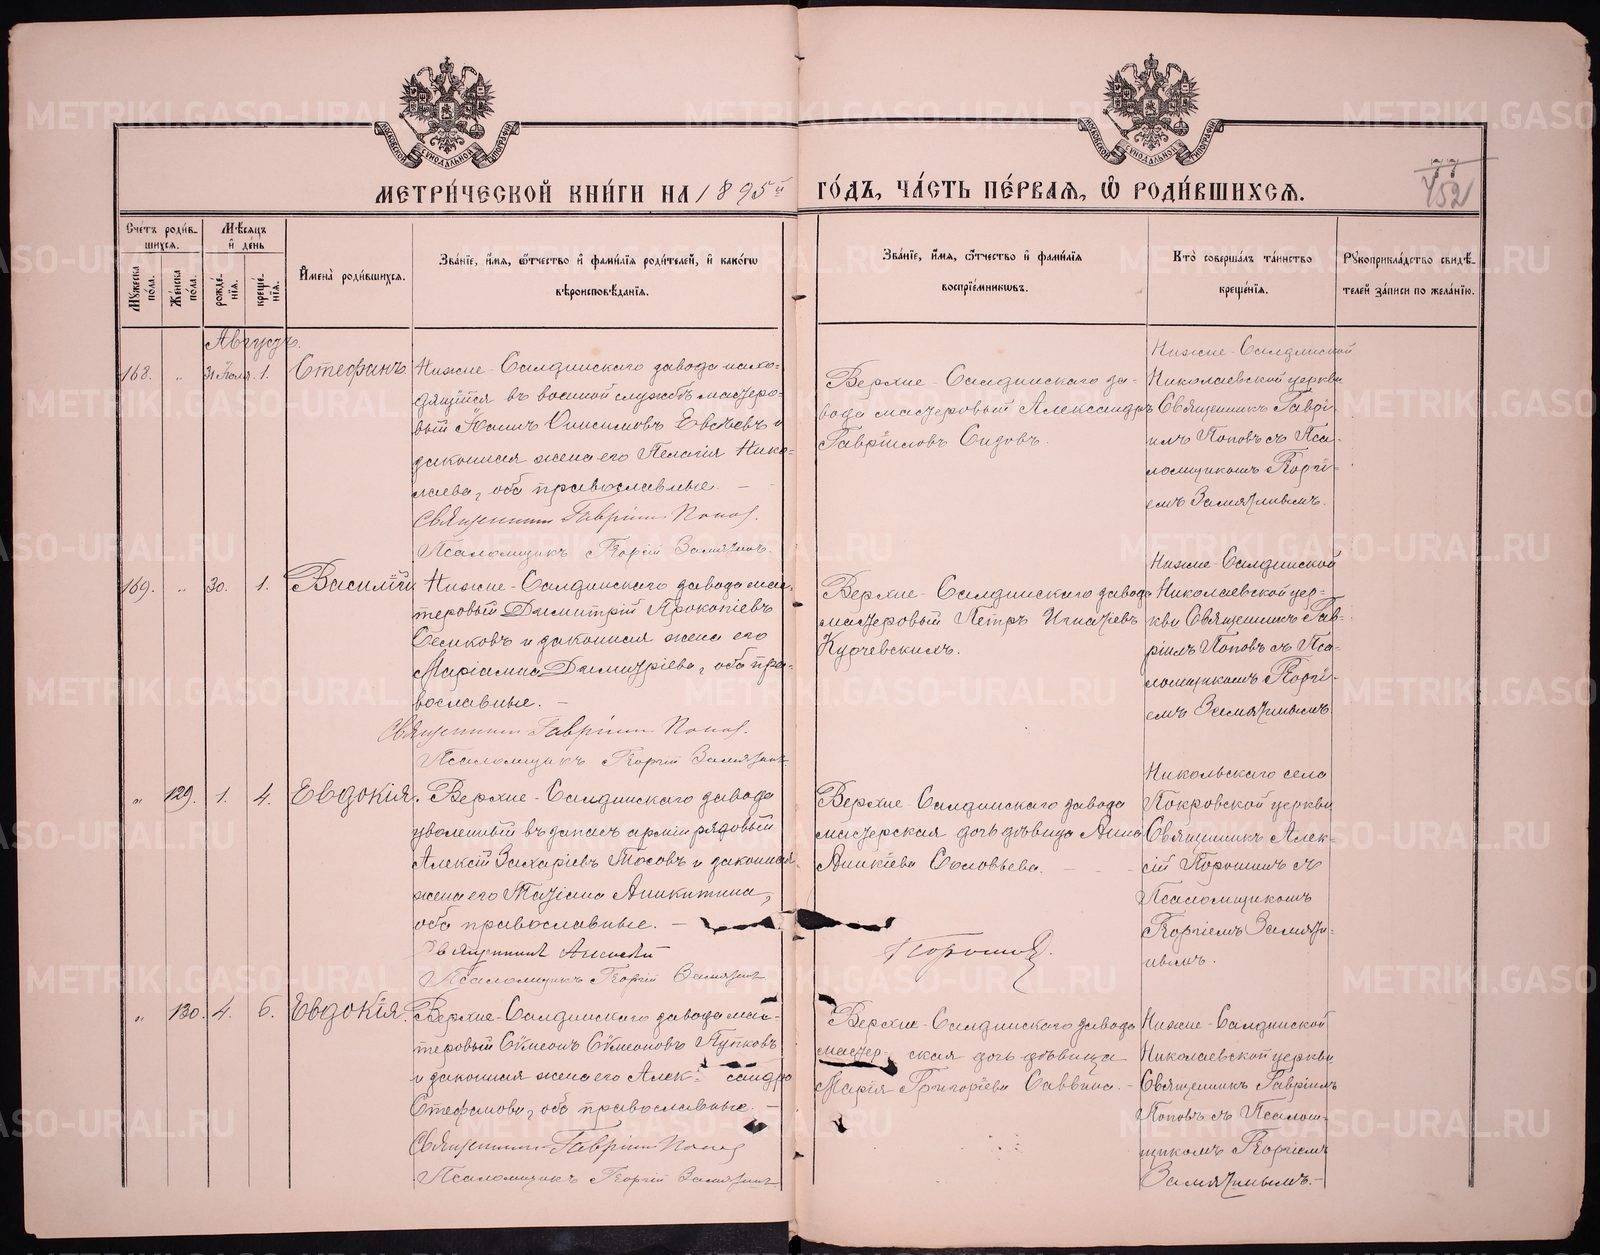 МОСКОВСКОЙ СѴНОДАЛЬНОЙ ТИПОГРАФИИ
МОСКОВСКОЙ СѴНОДАЛЬНОЙ ТИПОГРАФИИ
МЕТРИ́ЧЕСКОЙ КНИ́ГИ НА 1895й ГО́ДЪ, ЧА́СТЬ ПЕ́РВАЯ, Ѡ҆ РОДИ́ВШИХСЯ.
77
452
Сче́тъ роди́в-
шихся.
Мѣ́сяцъ
и҆ де́нь
Му́жеска по́ла.
Же́нска по́ла.
рожде́-нїя.
креще́-нїя.
И҆мена̀ роди́вшихся.
Зва́нїе, и҆́мя, ѻ҆́тчество и҆ фами́лїя роди́телей, и҆ како́гѡ
вѣроисповѣ́данїя.
Зва́нїе, и҆́мя, ѻ҆́тчество и҆ фами́лїя
воспрїе́мникѡвъ.
Кто̀ соверша́лъ та́инство
креще́нїя.
Рꙋкоприкла́дство свидѣ́-
телей за́писи по жела́нїю.
Августъ.
168. " 31 Іюля. 1. Стефанъ
Нижне-Салдинскаго завода нахо-
дящійся въ военной службѣ мастеро-
вый Онисимовъ Евсѣевъ и
законная жена его Пелагія Нико-
лаева, оба православные. —
Священникъ Гавріилъ Поповъ.
Псаломщикъ Георгій Замятнинъ.
Верхне-Салдинскаго за-
вода мастеровый Александръ
Гавріиловъ Сидовъ.
Нижне-Салдинской
Николаевской церкви
Священникъ Гаврі-
илъ Поповъ съ Пса-
ломщикомъ Георгі-
емъ Замятнинымъ.
169. " 30. 1. Василій
Нижне-Салдинскаго завода мас-
теровый Димитрій Прокопіевъ
и законная жена его
Маріамна Димитріева, оба пра-
вославные. —
Священникъ Гавріилъ Поповъ.
Псаломщикъ Георгій Замятнинъ.
Верхне-Салдинскаго завода
мастеровый Петръ Игнатіевъ
Курчевскимъ.
Нижне-Салдинской
Николаевской цер-
кви Священникъ Гав-
ріилъ Поповъ съ Пса-
ломщикомъ Георгі-
емъ Замятнинымъ.
" 129. 1. 4. Евдокія.
Верхне-Салдинскаго завода
уволенный въ запасъ арміи рядовый
Алексій Захаріевъ Носовъ и законная
жена его Татіана Аникитина,
оба православные. —
Священникъ Алексѣй
Псаломщикъ Георгій Замятнинъ
Верхне-Салдинскаго завода
мастерская дочь дѣвица Анна
Аникіева Соловьева.
Порошинъ.
Никольскаго села
Покровской церкви
Священникъ Алек-
сій Порошинъ съ
Псаломщикомъ
Георгіемъ Замятни-
нымъ.
" 130. 4. 6. Евдокія.
Верхне-Салдинскаго завода мас-
теровый Сѵмеонъ Сѵмеоновъ Пупковъ
и законная жена его Алек- сандра
Стефанова, оба православные. —
Священникъ Гавріилъ Поповъ
Псаломщикъ Георгій Замятнинъ
Верхне-Салдинскаго завода
мастер- ская дочь дѣвица
Марія Григоріева Саввина. —
Нижне-Салдинской
Николаевской церкви
Священникъ Гавріилъ
Поповъ съ Псалом-
щикомъ Георгіемъ
Замятнинымъ. —
METRIKI.GASO-URAL.RU